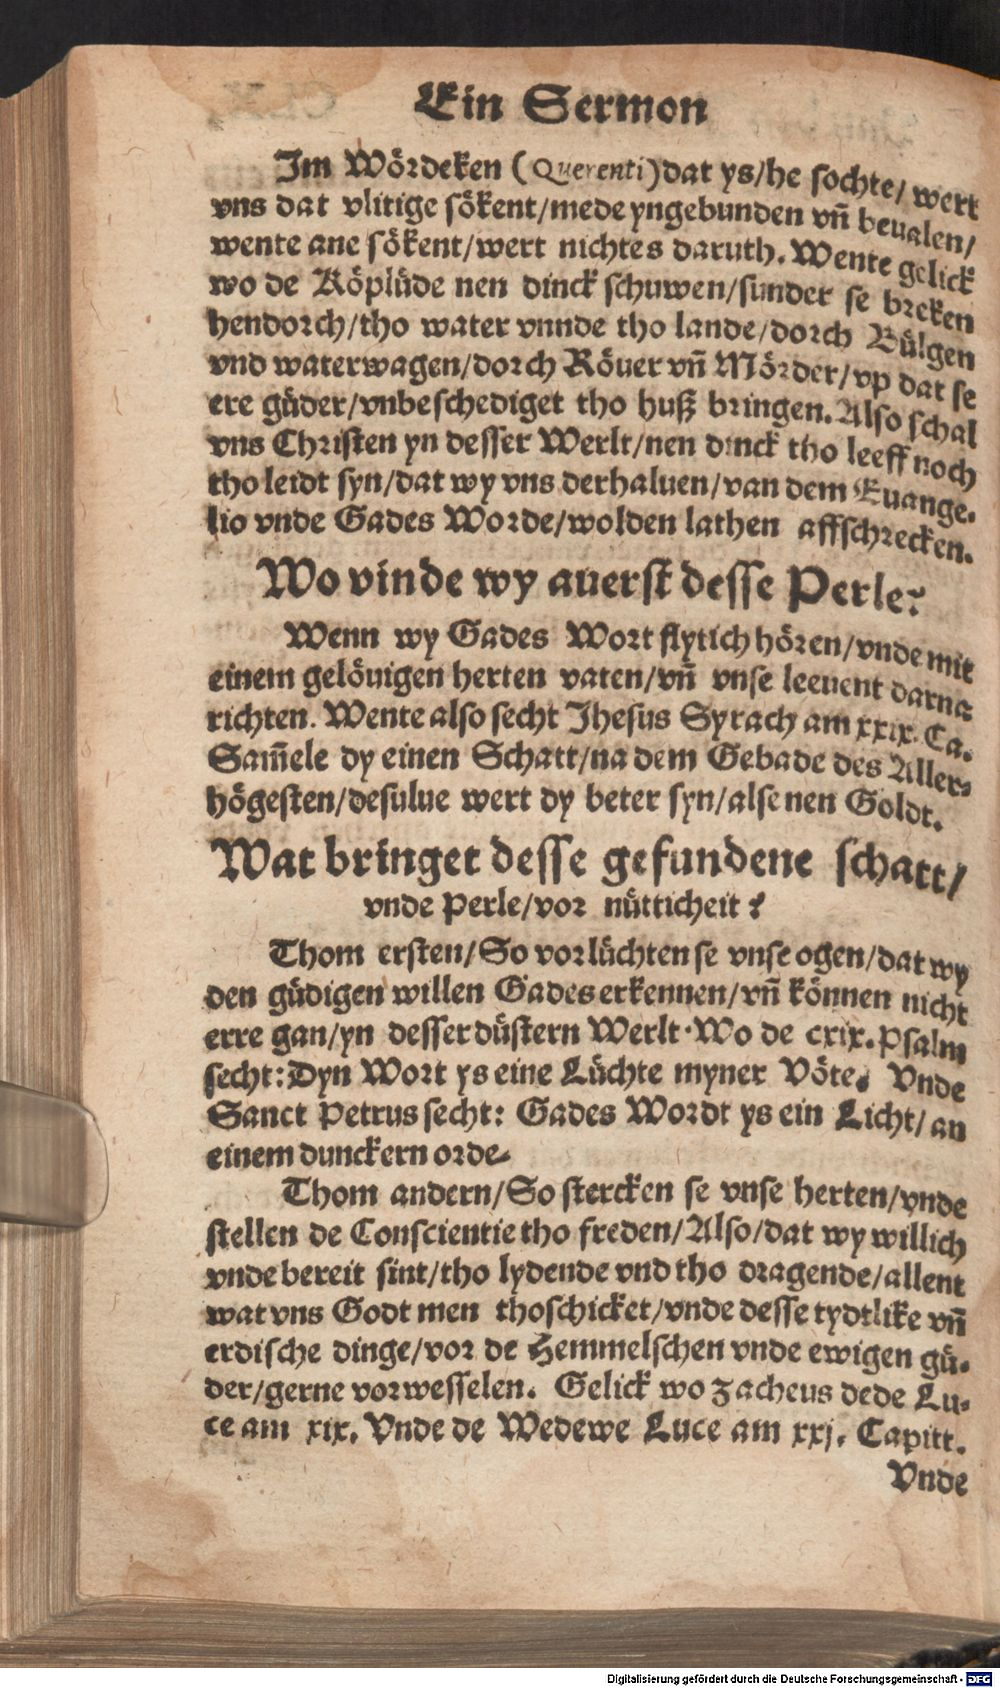 Ein Sermon
Im Wördeken (Querenti) dat ys/he sochte/ wert
vns dat vlitige sökent/mede yngebunden vn̄ beualen/
wente ane sökent/wert nichtes daruth. Wente gelick
wo de Köplüde nen dinck schuwen/sunder se breken
hendorch/tho water vnnde tho lande/dorch Bülgen
vnd waterwagen/dorch Röuer vn̄ Mörder/vp dat se
ere güder/vnbeschediget tho huß bringen. Also schal
vns Christen yn desser Werlt/nen dinck tho leeff noch
tho leidt syn/dat wy vns derhaluen/van dem Euange-
lio vnde Gades Worde/wolden lathen affschrecken.
Wo vinde wy auerst desse Perle?
Wenn wy Gades Wort flytich hören/vnde mit
einem gelöuigen herten vaten/vn̄ vnse leeuent darna
richten. Wente also secht Jhesus Syrach am xxix. Ca.
Sam̄ele dy einen Schatt/na dem Gebade des Aller-
högesten/desulue wert dy beter syn/alse nen Goldt.
Wat bringet desse gefundene schatt/
vnde Perle/vor nütticheit?
Thom ersten/So vorlüchten se vnse ogen/dat wy
den güdigen willen Gades erkennen/vn̄ können nicht
erre gan/yn desser düstern Werlt. Wo de cxix. Psalm
secht: Dyn Wort ys eine Lüchte myner Vöte. Vnde
Sanct Petrus secht: Gades Wordt ys ein Licht/an
einem dunckern orde.
Thom andern/So stercken se vnse herten/vnde
stellen de Conscientie tho freden/Also/dat wy willich
vnde bereit sint/tho lydende vnd tho dragende/allent
wat vns Godt men thoschicket/vnde desse tydtlike vn̄
erdische dinge/vor de Hemmelschen vnde ewigen gü-
der/gerne vorwesselen. Gelick wo Zacheus dede Lu-
ce am xix. Vnde de Wedewe Luce am xxj. Capitt.
Vnde
Digitalisierung gefördert durch die Deutsche Forschungsgemeinschaft - DFG